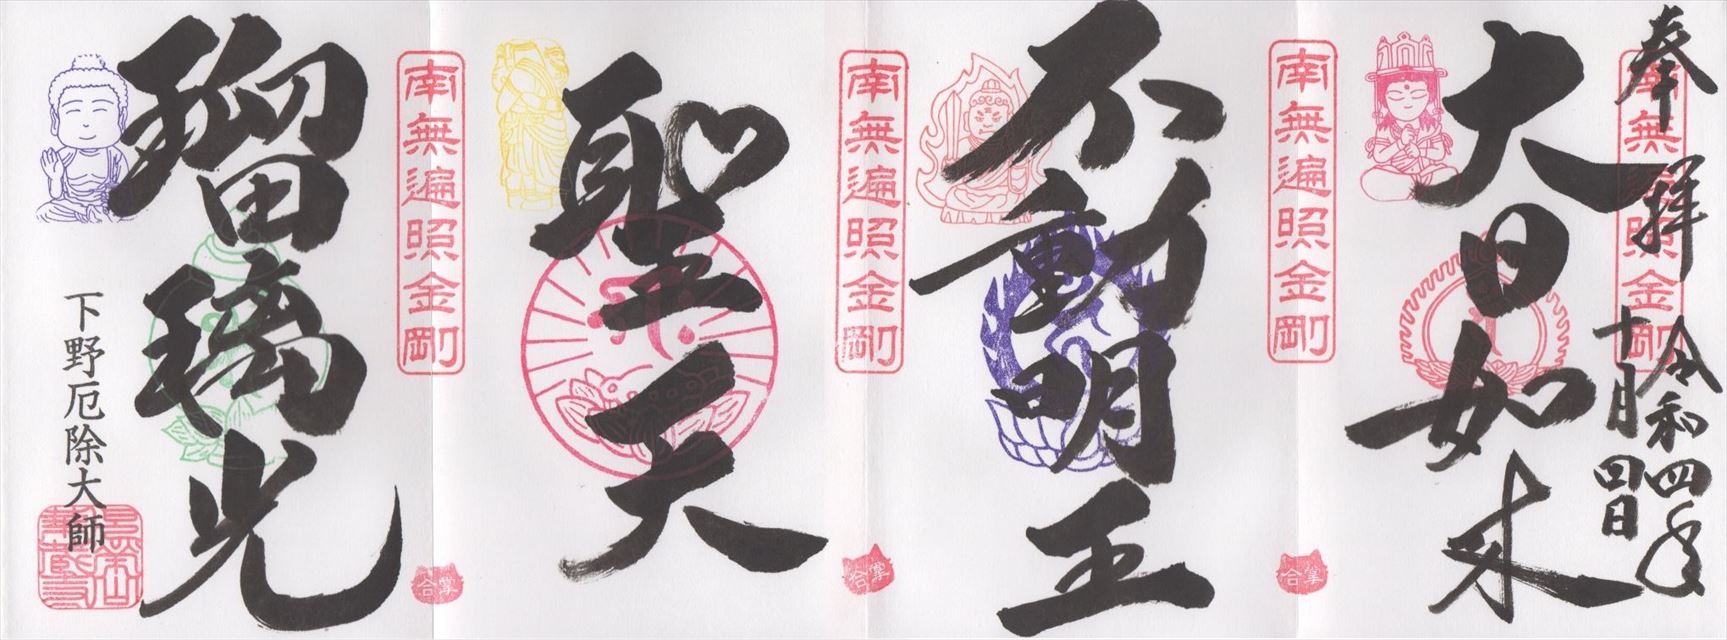 奉拝
令和四年
十月四日
大日如来
南無遍照金剛
南無遍照金剛
合掌
不動明王
南無遍照金剛
合掌
聖天
南無遍照金剛
合掌
瑠璃光
下野厄除大師